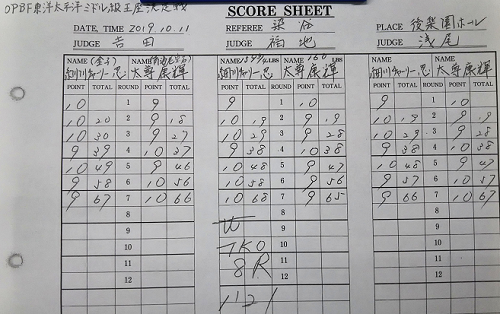 OPBF東洋太平洋ミドル級王座決定戦 SCORE SHEET
DATE, TIME 2019.10.11 REFEREE 染谷 PLACE 後楽園ホール
JUDGE 吉田 JUDGE 福地 JUDGE 浅尾
NAME (金子) NAME LBS 160 LBS NAME NAME
細川チャーリー忍 太尊康輝 細川チャーリー忍 太尊康輝 細川チャーリー忍 太尊康輝
POINT TOTAL ROUND POINT TOTAL POINT TOTAL ROUND POINT TOTAL POINT TOTAL ROUND POINT TOTAL
10 1 9 9 1 10 9 1 10
10 20 2 9 18 10 19 2 9 19 10 19 2 9 19
10 30 3 9 27 10 29 3 9 28 10 29 3 9 28
9 39 4 10 37 9 38 4 10 38 9 38 4 10 38
10 49 5 9 46 10 48 5 9 47 10 48 5 9 47
9 58 6 10 56 10 58 6 9 56 9 57 6 10 57
9 67 7 10 66 10 68 7 9 65 9 66 7 10 67
8 W 8 8
9 9 9
10 TKO 10 10
11 8R 11 11
12 12 12